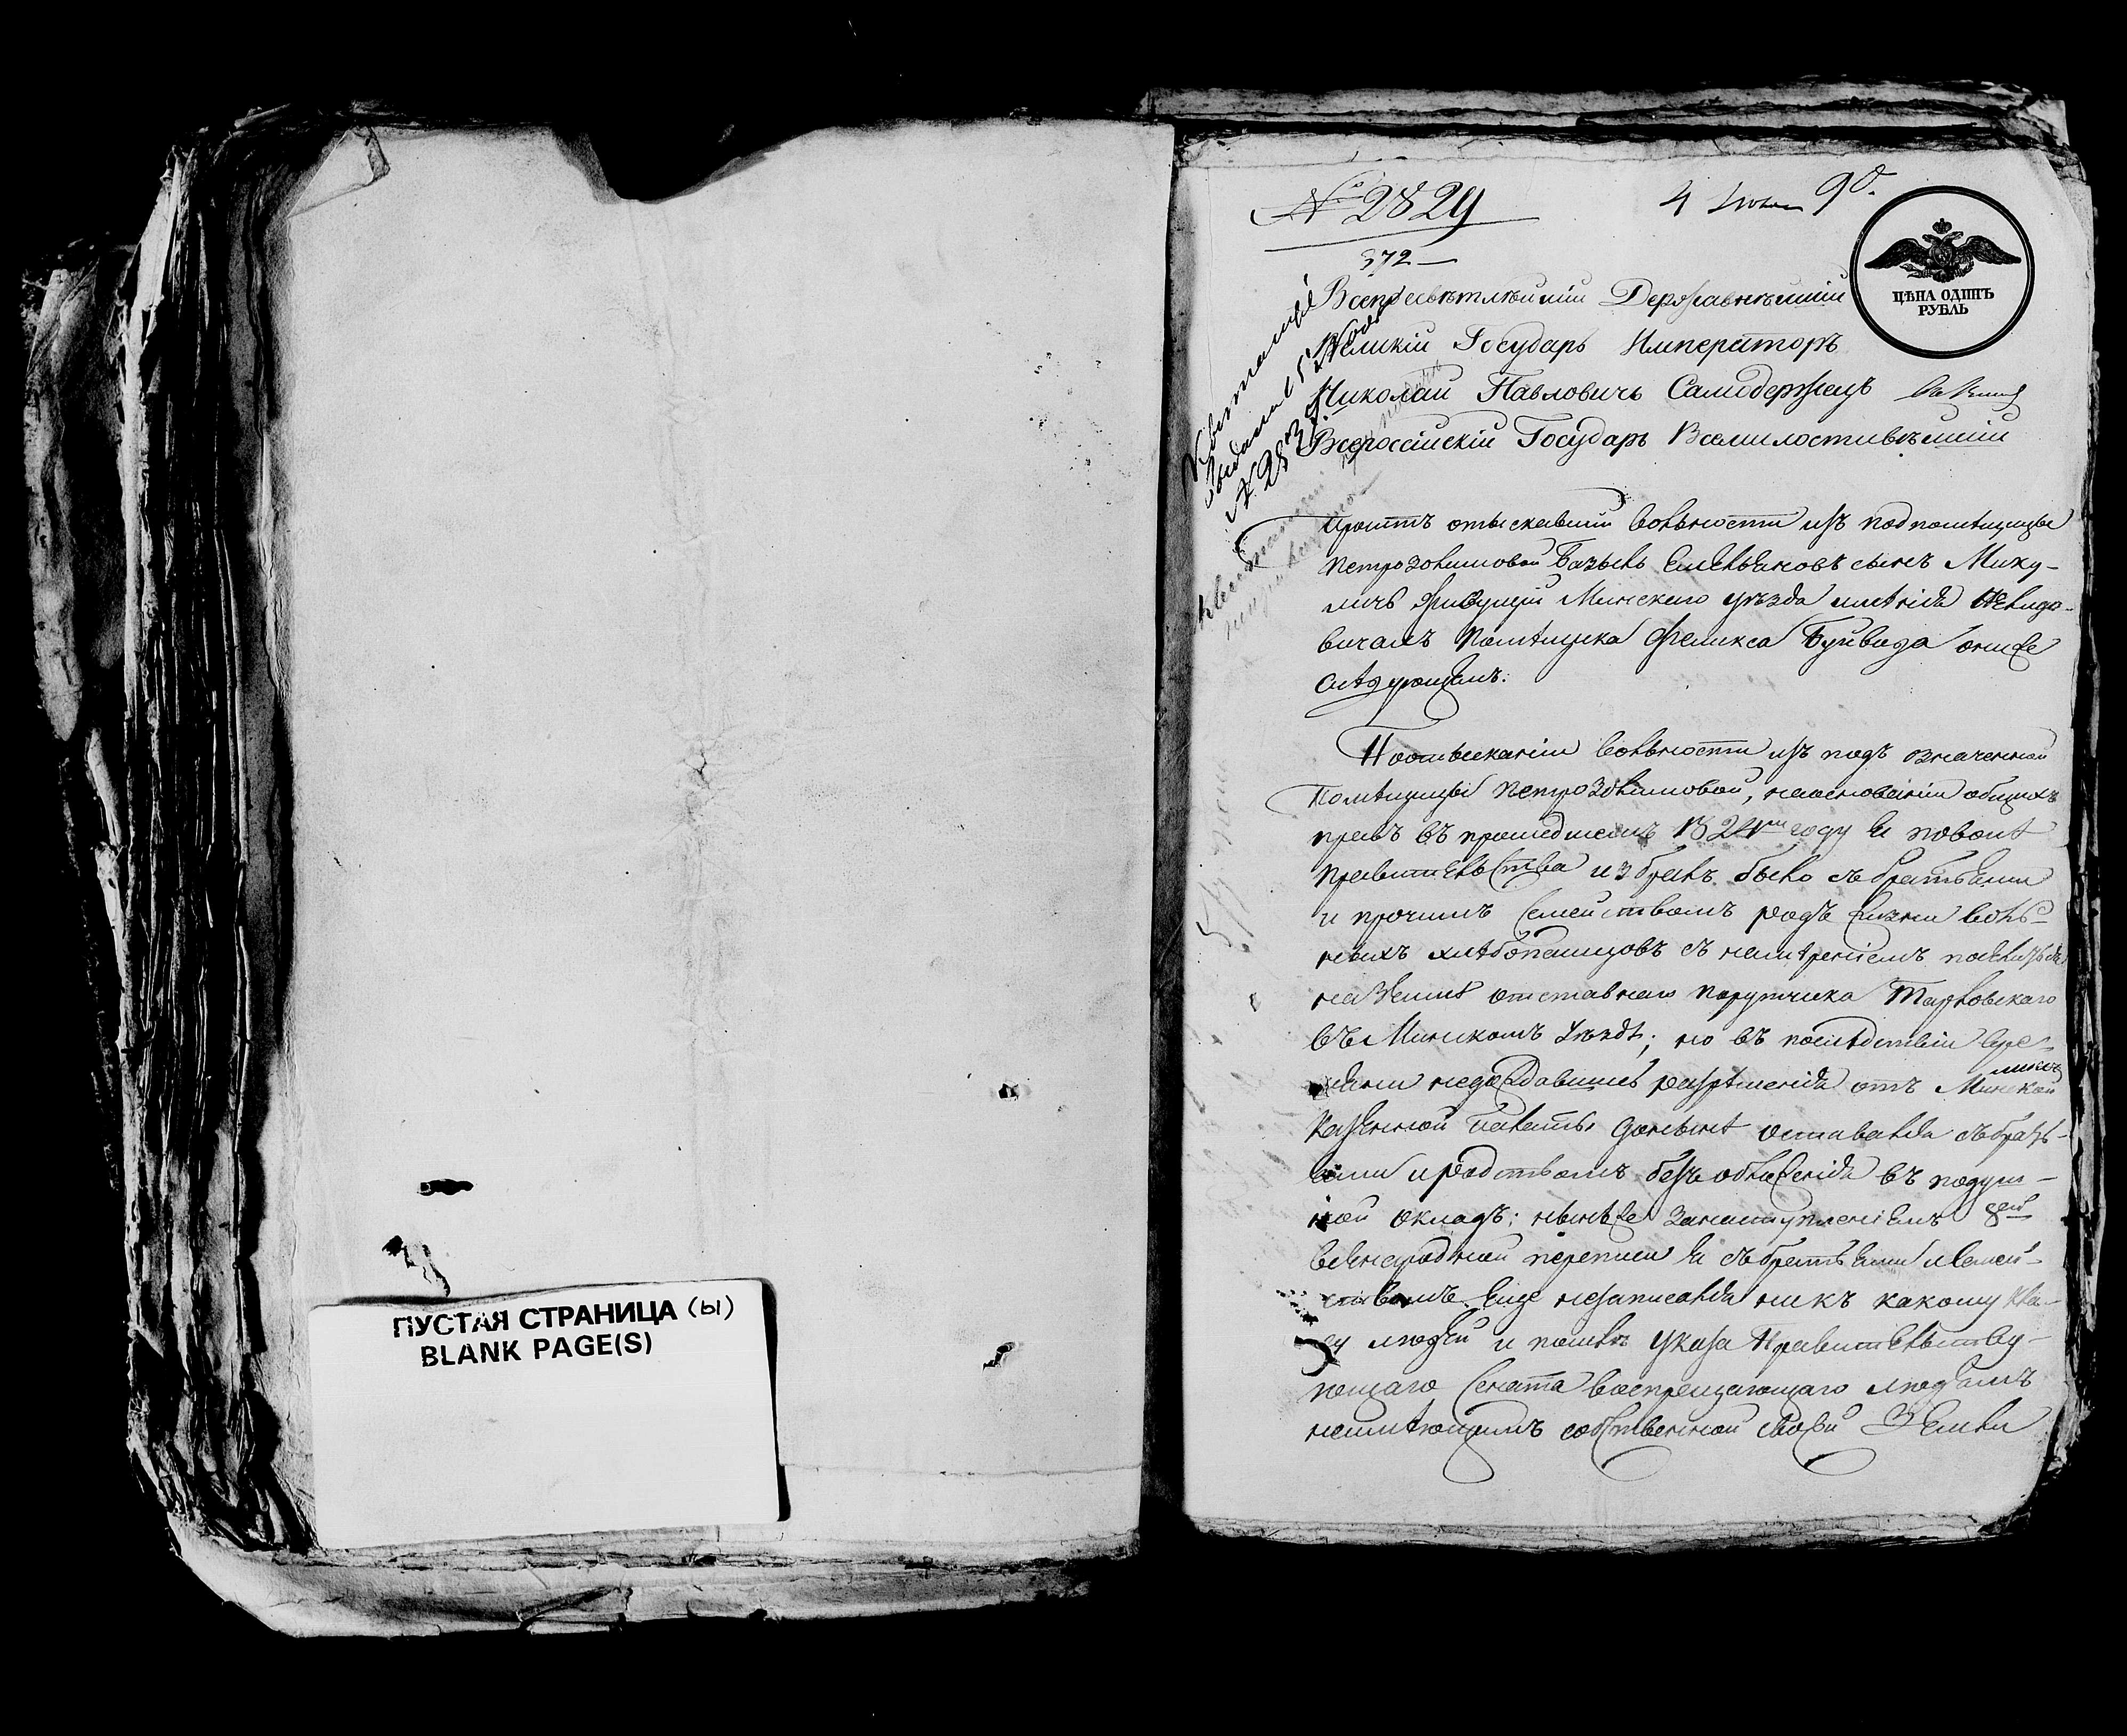 ПУСТАЯ СТРАНИЦА (ы)
BLANK PAGE(S)
№ 2829
372
4 Июня 9º.
ЦѢНА ОДИНЪ
РУБЛЬ
Всепресвѣтлѣйшій Державнѣйшій
Великій Государь Императоръ
Николай Павловичъ Самодержецъ
Всероссійскій Государь Всемилостивѣйшій
проситъ отыскавшій вольности изъ подпомѣщицы
Базыль Емельяновъ сынъ Мику-
личъ живущій Минскаго уѣзда имѣнія
вичахъ помѣщика Феликса Буйвида онижe
слѣдующемъ:
По отысканіи вольности изъ подъ означенной
помѣщицы, на основаніи общихъ
правъ въ прошедшемъ 1824мъ году я по волѣ
правительства избралъ было съ братьями
и прочимъ семействомъ родъ жизни воль-
ныхъ хлѣбопашцовъ съ намѣреніемъ
на землѣ отставнаго поручика Тарновскаго
въ Минскомъ уѣздѣ; но въ послѣдствіи вре-
мяни недождавшись разрѣшенія отъ Минской
Казенной Палаты донынѣ оставался съ брать-
ями и родствомъ безъ обложенія въ подуш-
ной окладъ; нынѣже занаступленіемъ 8ей
всенародной переписи я съ братьями и семей-
ствомъ еще незаписался никъ какому кла-
су людей и послѣ указа Правительству-
ющаго Сената воспрещающаго людямъ
неимѣющимъ собственной своей земли